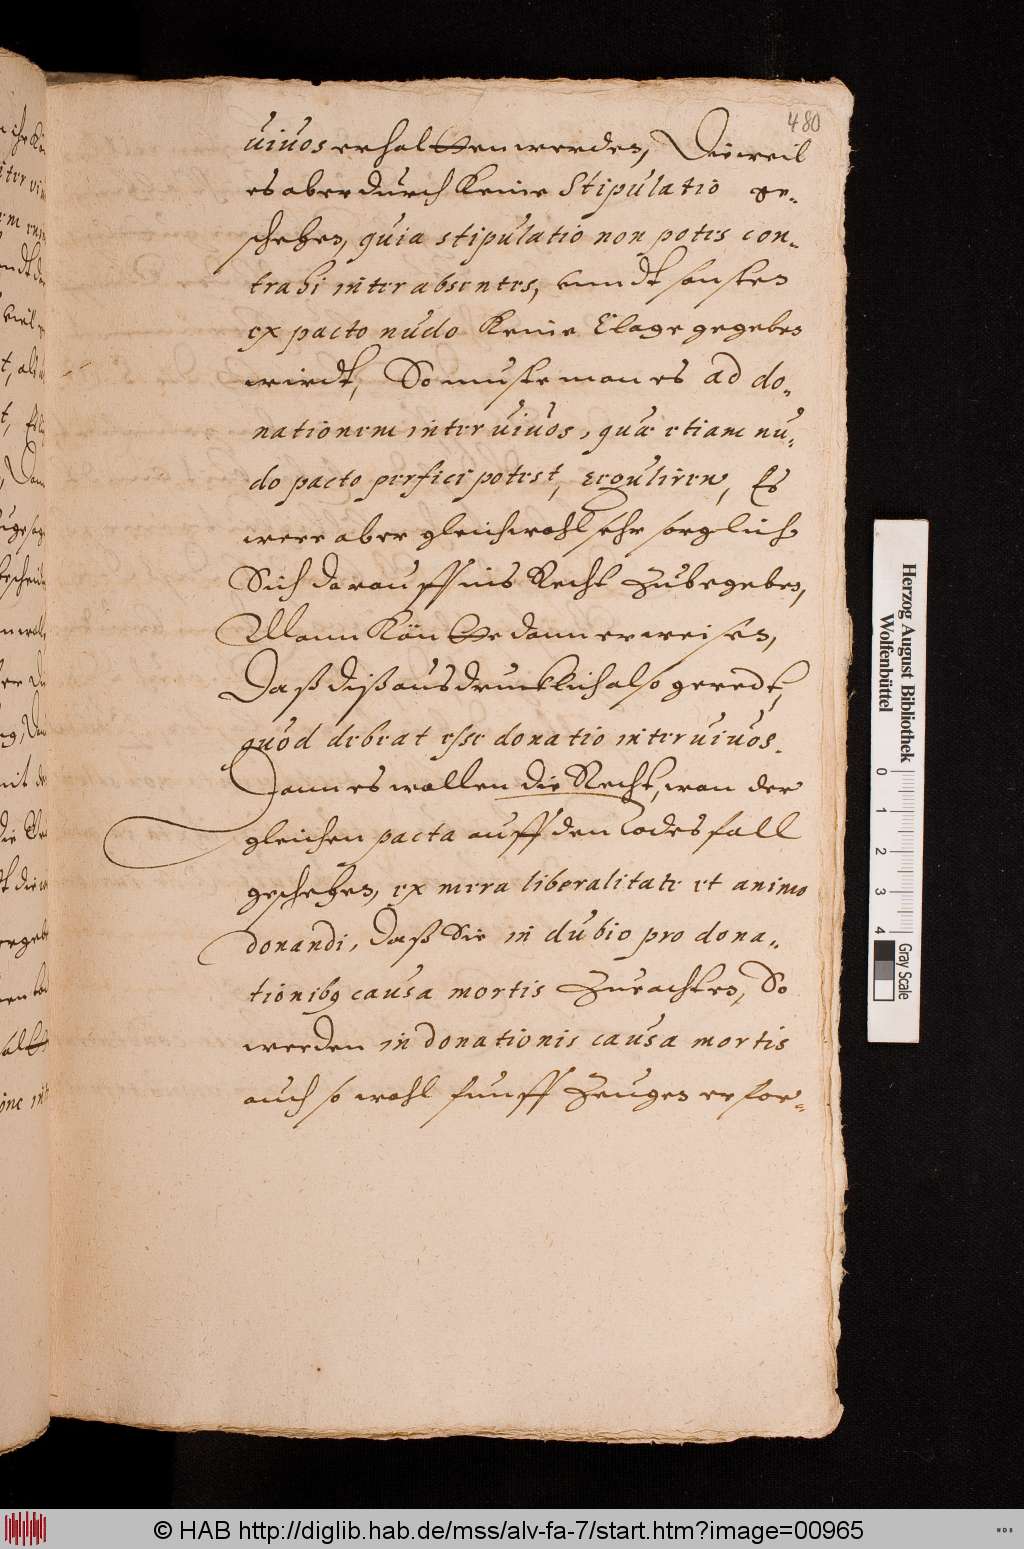 480
vivos erhaltten werden, Dieweil
es aber durch keine Stipulatio ge-
schehen, quia stipulatio non potes con-
trahi inter absentes, vnndt sonsten
ex pacto nudo keine Clage gegeben
wirdt, So muste man es ad do-
nationem inter vivos, quæ etiam nu-
do pacto perfici potest, reguliren, Es
were aber gleichwohl sehr sorglich
Sich darauff ins Recht zubegeben,
Mann köntte dann erweisen,
Daß diß ausdrucklich also geredt,
quod debeat esse donatio inter vivos.
Dann es wollen die Recht, wan der
gleichen pacta auff den Todesfall
geschehen, ex mera liberalitate et animo
donandi, Daß Sie in dubio pro dona-
tionibg causa mortis zueachten, So
werden in donationis causa mortis
auch so wohl funff Zeugen erfor-
Herzog August Bibliothek
Wolfenbüttel
0 1 2 3 4
Gray Scale
© HAB http://diglib.hab.de/mss/alv-fa-7/start.htm?image=00965